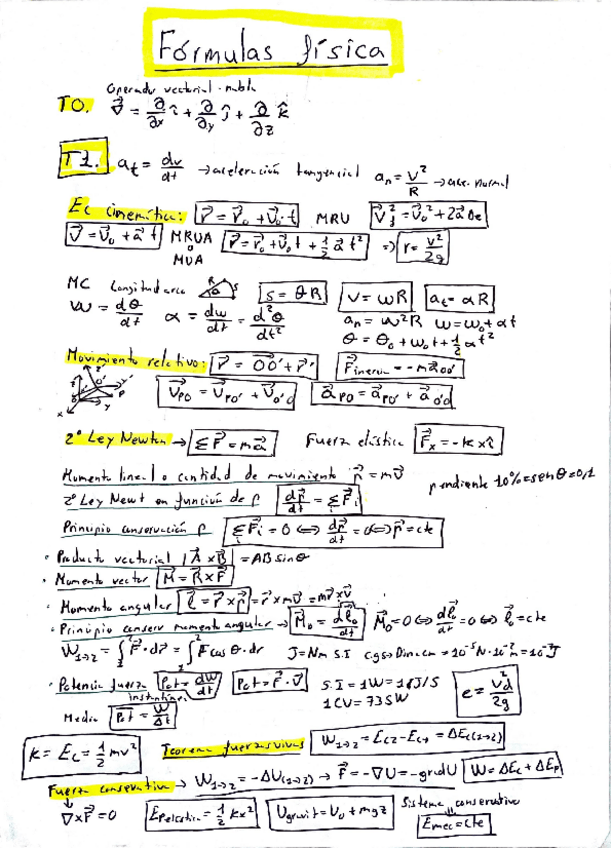 Fórmulas física
Operador vectorial nabla
T0. ∇⃗ = ∂/∂x î + ∂/∂y ĵ + ∂/∂z k̂
T1. a_t = dv/dt → aceleración tangencial a_n = v²/R → ace. normal
Ec cinemática: r⃗ = r⃗₀ + v⃗₀·t MRU v⃗_f² = v⃗₀² + 2a⃗ Δe
v⃗ = v⃗₀ + a⃗ t MRUA o MUA r⃗ = r⃗₀ + v⃗₀ t + 1/2 a⃗ t² => r = v²/2g
MC Longitud arco R S S = θR v = ωR a_t = αR
ω = dθ/dt α = dω/dt = d²θ/dt² a_n = ω²R ω = ω₀ + αt
θ = θ₀ + ω₀t + 1/2 αt²
Movimiento relativo: r⃗ = OO'⃗ + r⃗' F⃗ = -m a⃗₀₀'
v⃗_PO = v⃗_PO' + v⃗_O'O a⃗_PO = a⃗_PO' + a⃗_O'O
2ª Ley Newton → Σ F⃗ = m a⃗ Fuerza elástica F⃗_x = -k x î
Momento lineal o cantidad de movimiento p⃗ = m v⃗ pendiente 10% = sen θ = 0,1
2ª Ley Newt en función de p dp⃗/dt = Σ_i F⃗_i
Principio conservación p Σ_i F⃗_i = 0 ⟺ dp⃗/dt = 0 ⟺ p⃗ = cte
· Producto vectorial |A⃗ x B⃗| = AB sin θ
· Momento vector M⃗ = R⃗ x F⃗
· Momento angular l⃗ = r⃗ x p⃗ = r⃗ x m v⃗ = m r⃗ x v⃗
· Principio conserv momento angular → M⃗₀ = dl⃗₀/dt M⃗₀ = 0 ⟺ dl⃗₀/dt = 0 ⟺ l⃗₀ = cte
W₁→₂ = ∫₁² F⃗·dr⃗ = ∫₁² F cos θ · dr J = Nm S.I cgs → Dina·cm = 10⁻⁵ N · 10⁻² m = 10⁻⁷ J
· Potencia fuerza Pot = dW/dt Pot = F⃗ · v⃗ S.I = 1W = 1 J/S e = v²/2g
instantánea 1CV = 735W
Media Pot = W/Δt
K = E_c = 1/2 mv² Teorema fuerzas vivas W₁→₂ = E_c2 - E_c1 = ΔE_c(1→2)
Fuerza conservativa → W₁→₂ = -ΔU(1→2) → F⃗ = -∇U = -grad U W = ΔE_c + ΔE_p
∇ x F⃗ = 0 E_p elástica = 1/2 kx² U gravit = U₀ + mgz Sistema conservativo
E mec = cte